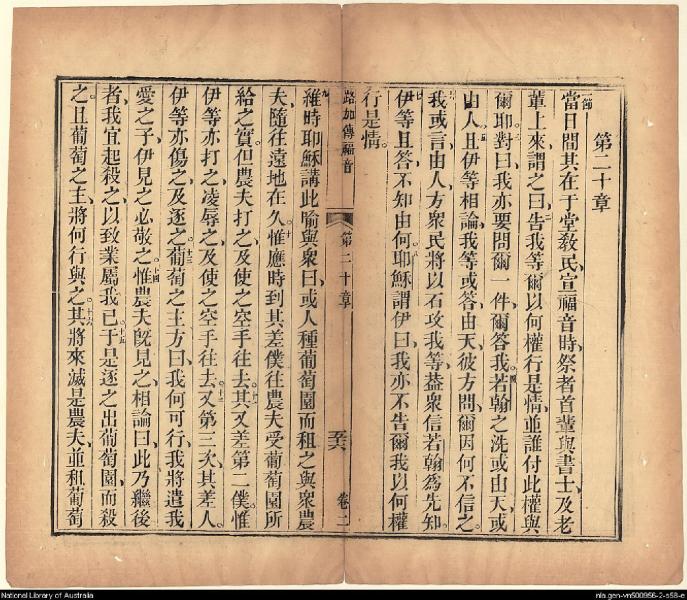 第二十章
節一當日間其在于堂教民宣福音時、祭者首輩與書士及老
輩上來、謂之曰、二告我等爾以何權行是情、並誰付此權與
爾。三耶對曰、我亦要問爾一件、爾答我。四若翰之洗或由天、或
由人。五且伊等相論、我等或答由天、彼方問爾因何不信之。
六我或言、由人、方衆民將以石攻我等、葢衆信若翰為先知。
七伊等且答、不知由何。八耶穌謂伊曰、我亦不告爾我以何權
行是情。
路加傳福音 第二十章 卷二
九維時耶穌講此喻與衆曰、或人種葡萄園而租之與衆農
夫、隨往遠地在久。十惟應時到其差僕往農夫受葡萄園所
給之實、但農夫打之、及使之空手往去。十一其又差第二僕、惟
伊等亦打之、凌辱之、及使之空手往去。十二又第三次其差人、
伊等亦傷之、及逐之。十三葡萄之主方曰、我何可行、我將遣我
愛之子、伊見之必敬之。十四惟農夫旣見之、相論曰、此乃繼後
者、我宜起殺之、以致業屬我已。十五于是逐之出葡萄園、而殺
之、且葡萄之主、將何行與之。十六其將來滅是農夫、並租葡萄
National Library of Australia
nla.gen-vn500956-2-s58-e